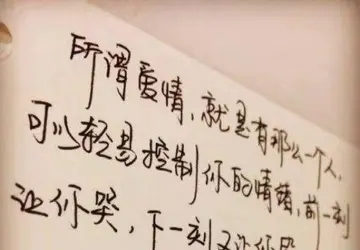 所谓爱情,就是有那么一个人,
可以轻易控制你的情绪,前一刻
让你哭,下一刻又让你